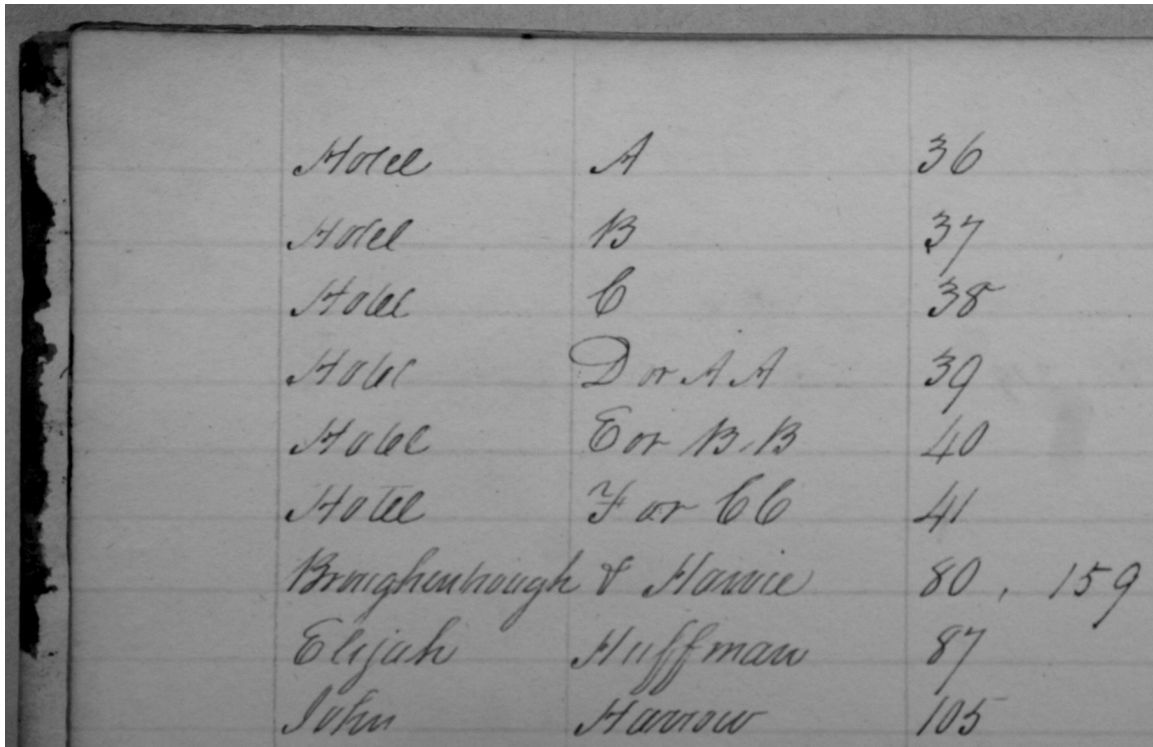 Hotel A 36
Hotel B 37
Hotel C 38
Hotel D or A A 39
Hotel E or B B 40
Hotel F or CC 41
Broughenhough & Harvie 80, 159
Elijah Huffman 87
John Harrow 105